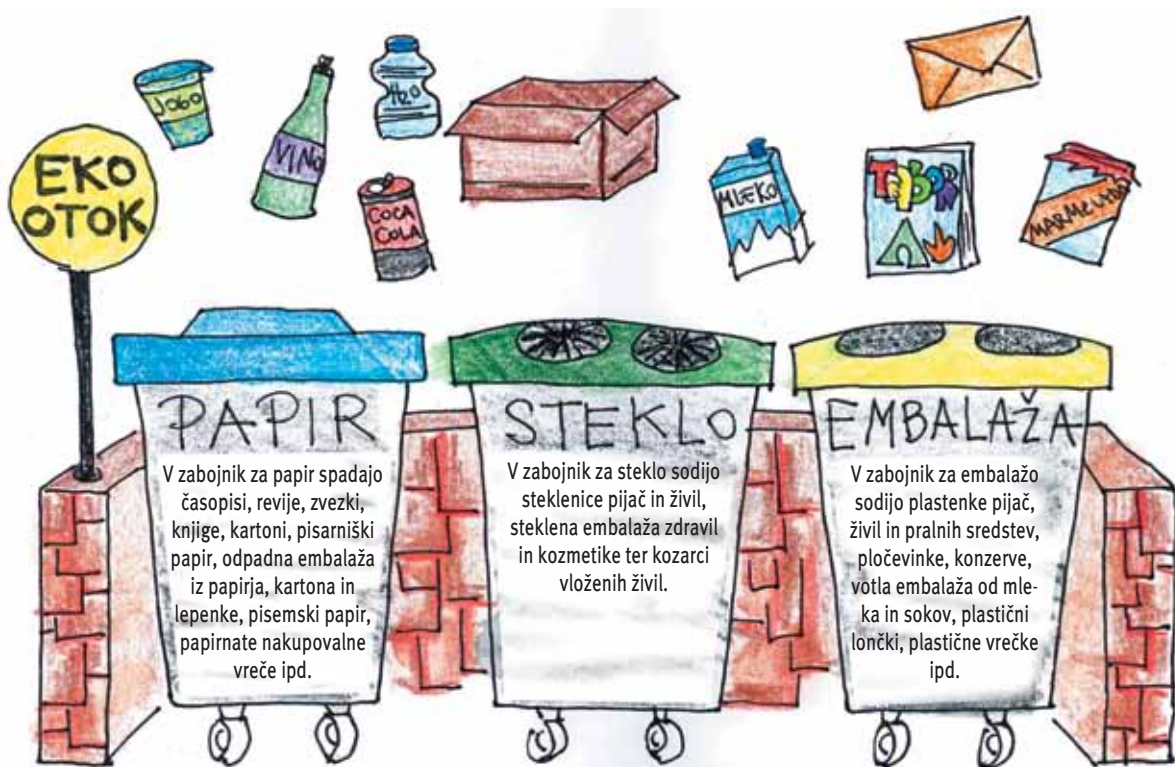 JOGO
VINO
H2O
COCA
COLA
MLEKO
TABOR
MARMELADA
EKO
OTOK
PAPIR
V zabojnik za papir spadajo
časopisi, revije, zvezki,
knjige, kartoni, pisarniški
papir, odpadna embalaža
iz papirja, kartona in
lepenke, pisemski papir,
papirnate nakupovalne
vreče ipd.
STEKLO
V zabojnik za steklo sodijo
steklenice pijač in živil,
steklena embalaža zdravil
in kozmetike ter kozarci
vloženih živil.
EMBALAŽA
V zabojnik za embalažo
sodijo plastenke pijač,
živil in pralnih sredstev,
pločevinke, konzerve,
votla embalaža od mle-
ka in sokov, plastični
lončki, plastične vrečke
ipd.